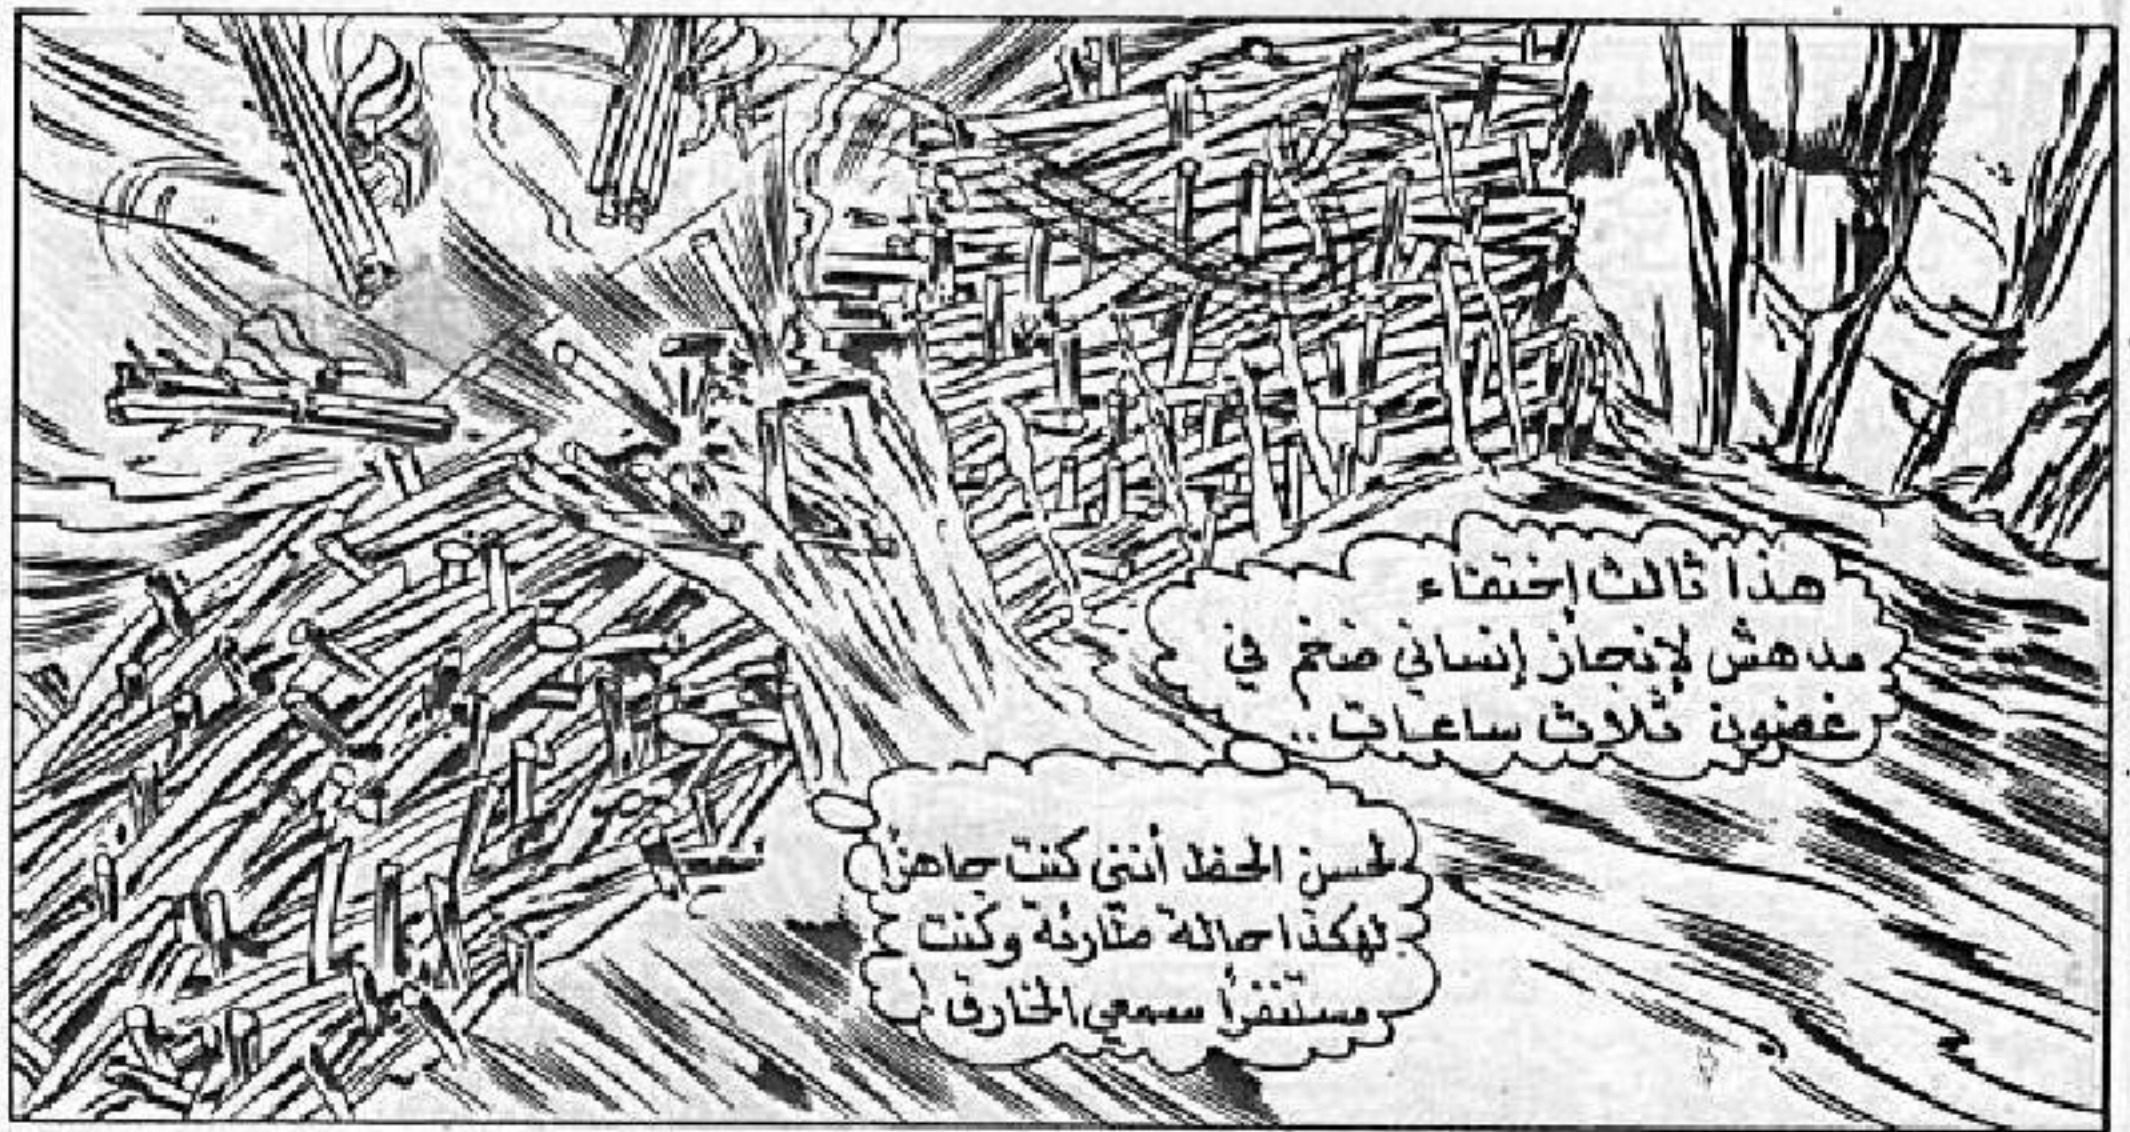 هذا ثالث إختفاء
مدهش لإنجاز إنساني ضخم في
غضون ثلاث ساعات..
لحسن الحظ أنني كنت جاهزاً
لهكذا حالة طارئة وكنت
مستنفراً سمعي الخارق.